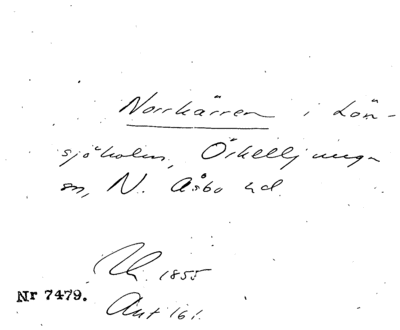 Norrkärren i Lön-
sjöholm, Örkelljunga
sn, N. Åsbo hd.
1855
Nr 7479.
Ant 161.